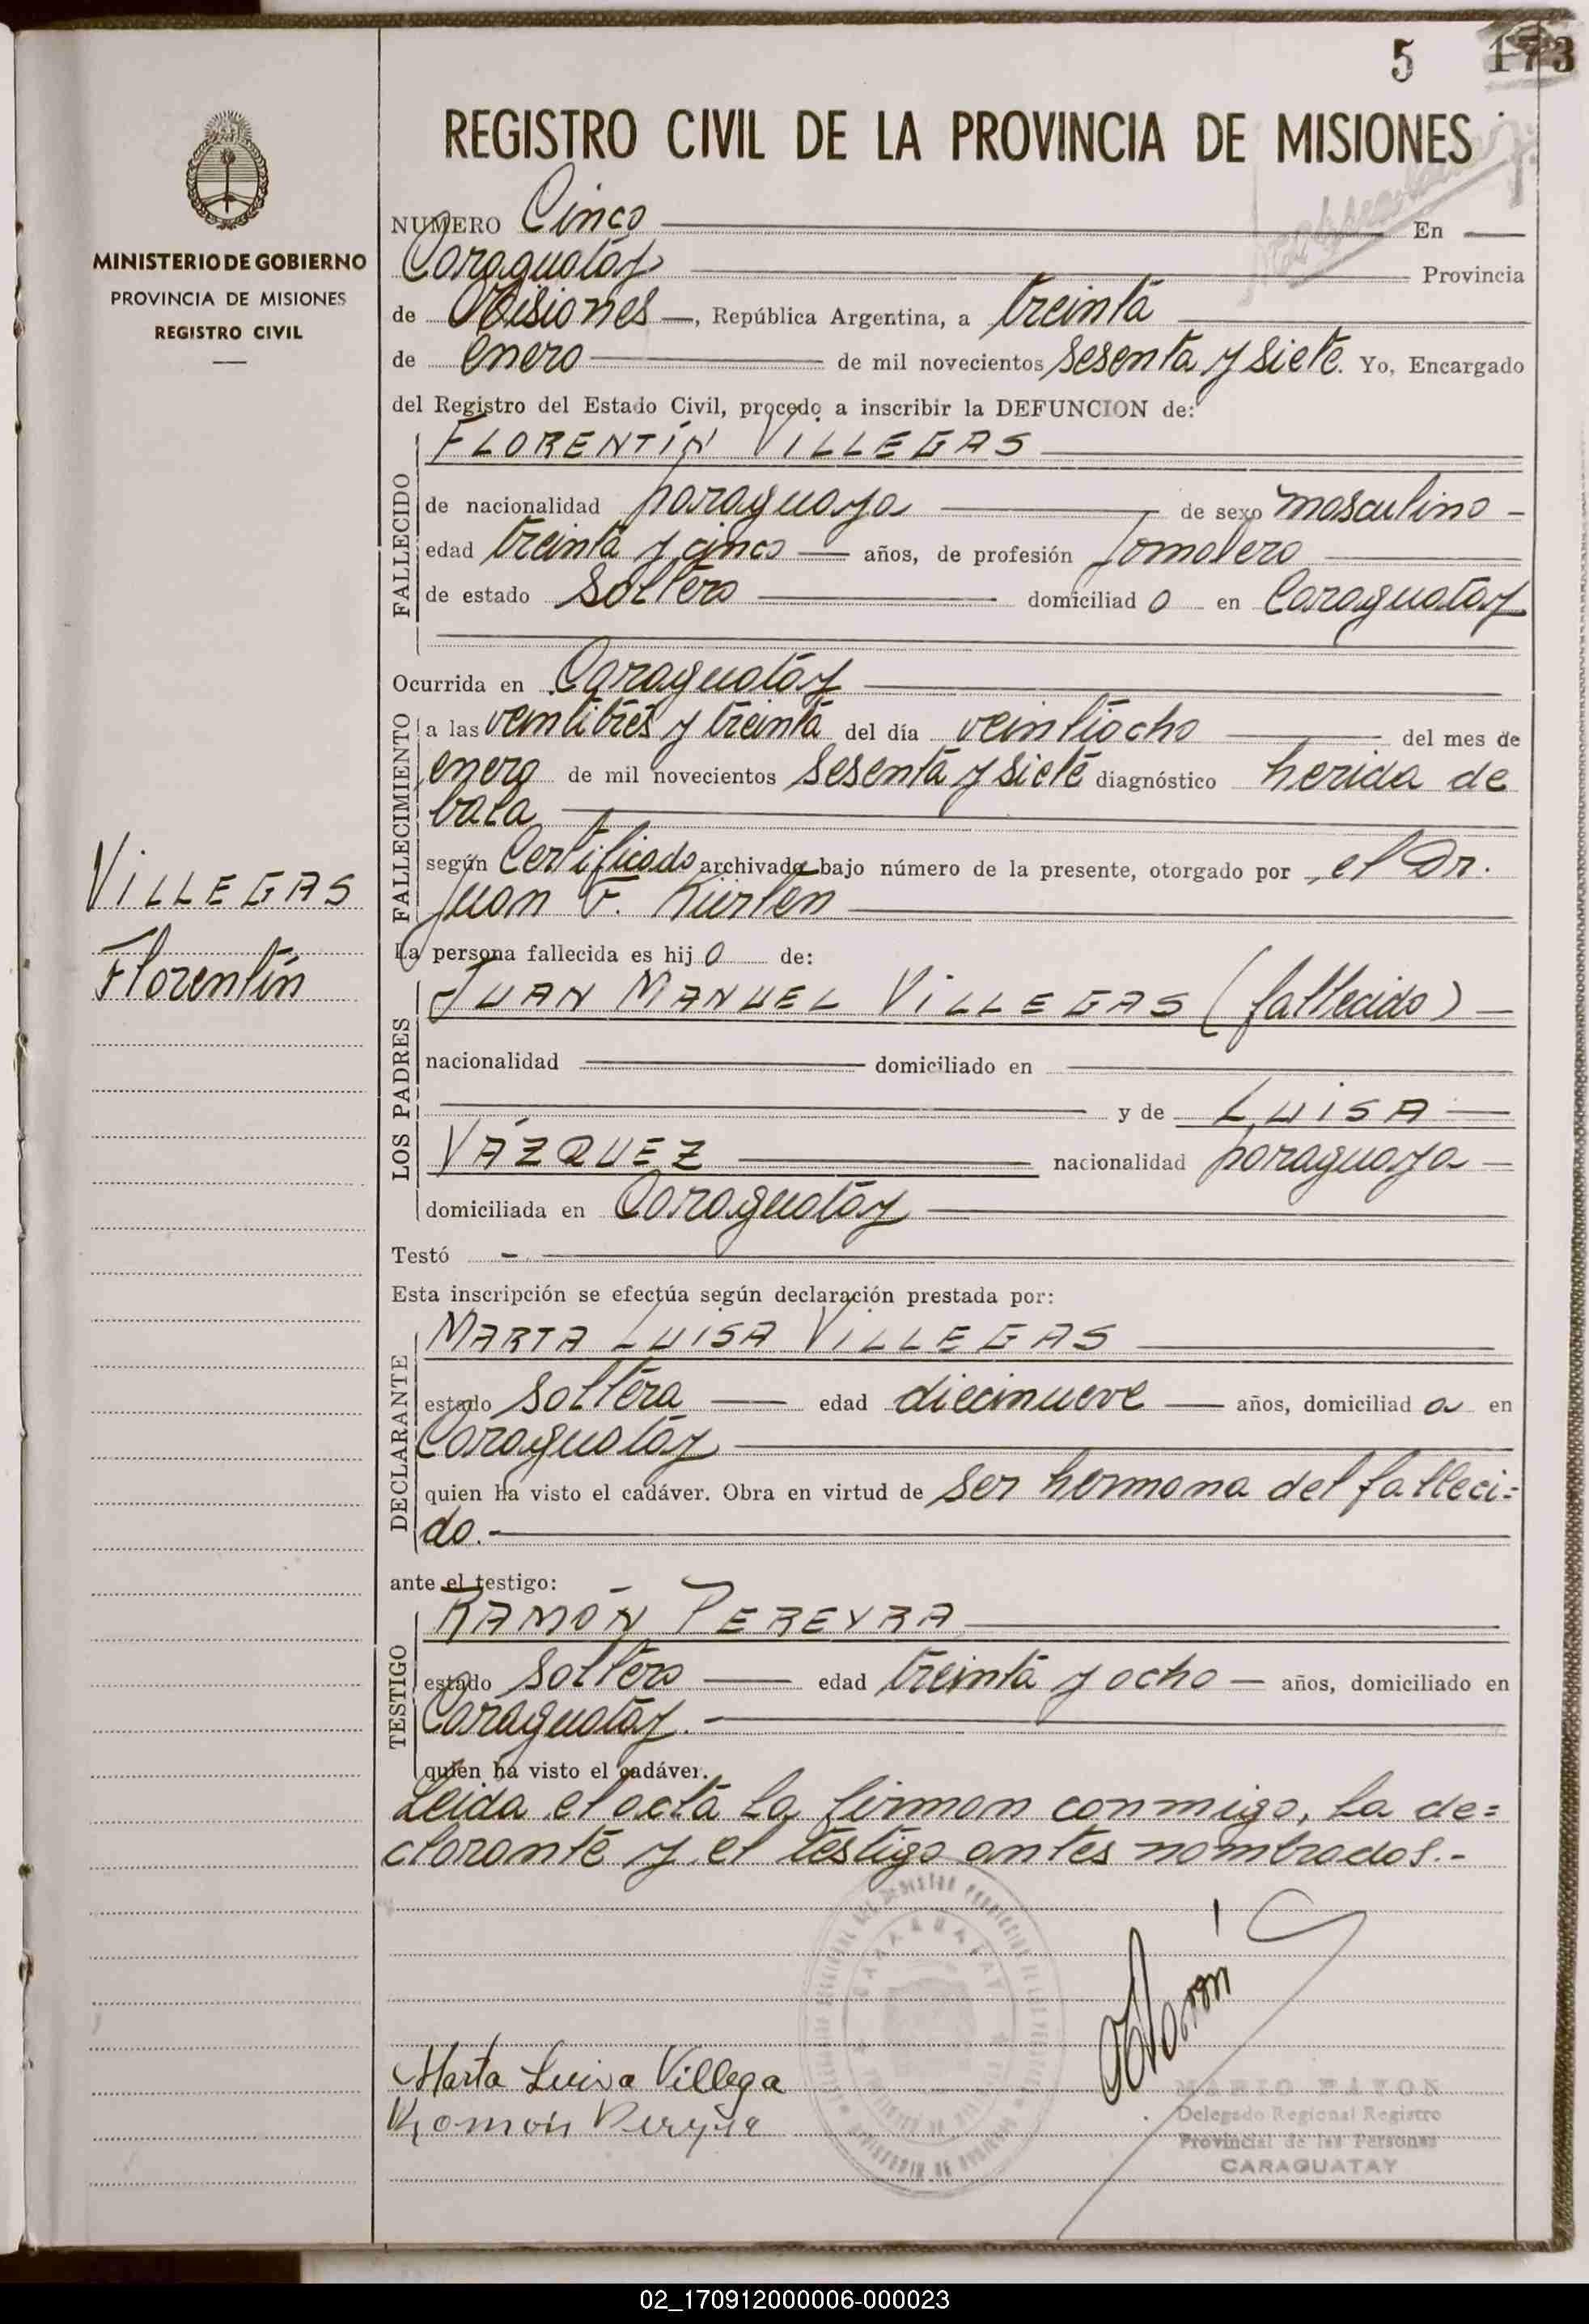 5 173
REGISTRO CIVIL DE LA PROVINCIA DE MISIONES
MINISTERIO DE GOBIERNO
PROVINCIA DE MISIONES
REGISTRO CIVIL
NUMERO Cinco En
Caraguatay Provincia
de Misiones, República Argentina, a treinta
de enero de mil novecientos sesenta y siete. Yo, Encargado
del Registro del Estado Civil, procedo a inscribir la DEFUNCION de:
FLORENTÍN VILLEGAS
FALLECIDO
de nacionalidad paraguaya de sexo masculino
edad treinta y cinco años, de profesión Jornalero
de estado soltero domiciliad o en Caraguatay
Ocurrida en Caraguatay
FALLECIMIENTO
a las veintitrés y treinta del día veintiocho del mes de
enero de mil novecientos sesenta y siete diagnóstico herida de
bala
según Certificado archivado bajo número de la presente, otorgado por el Dr.
Juan F. Kürten
VILLEGAS
Florentín
La persona fallecida es hij o de:
LOS PADRES
JUAN MANUEL VILLEGAS (fallecido)
nacionalidad domiciliado en
y de LUISA
VÁZQUEZ nacionalidad paraguaya
domiciliada en Caraguatay
Testó -
Esta inscripción se efectúa según declaración prestada por:
DECLARANTE
MARTA LUISA VILLEGAS
estado soltera edad diecinueve años, domiciliad a en
Caraguatay
quien ha visto el cadáver. Obra en virtud de ser hermana del falleci=
do.-
ante el testigo:
TESTIGO
RAMÓN PEREYRA
estado soltero edad treinta y ocho años, domiciliado en
Caraguatay.
quien ha visto el cadáver.
Leida el acta la firman conmigo, la de=
clarante y el testigo antes nombrados.-
Marta Luisa Villega
Ramon Pereyra
Delegado Regional Registro
Provincial de las Personas
CARAGUATAY
02_170912000006-000023